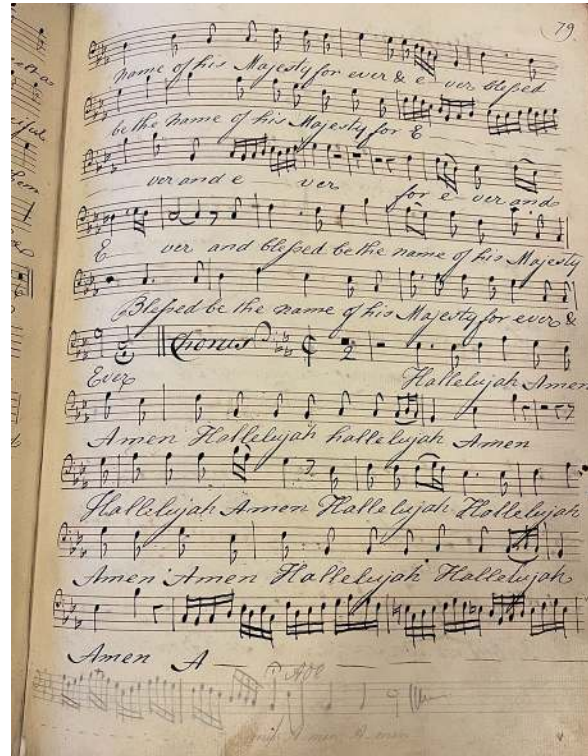 79
name of his Majesty for ever & e ver blessed
be the name of his Majesty for E
ver and e ver for e-ver and
E ver and blessed be the name of his Majesty
Blessed be the name of his Majesty for ever &
Ever Chorus 2 Hallelujah Amen
Amen Hallelujah hallelujah Amen
Hallelujah Amen Hallelujah Hallelujah
Amen Amen Hallelujah Hallelujah
Amen A